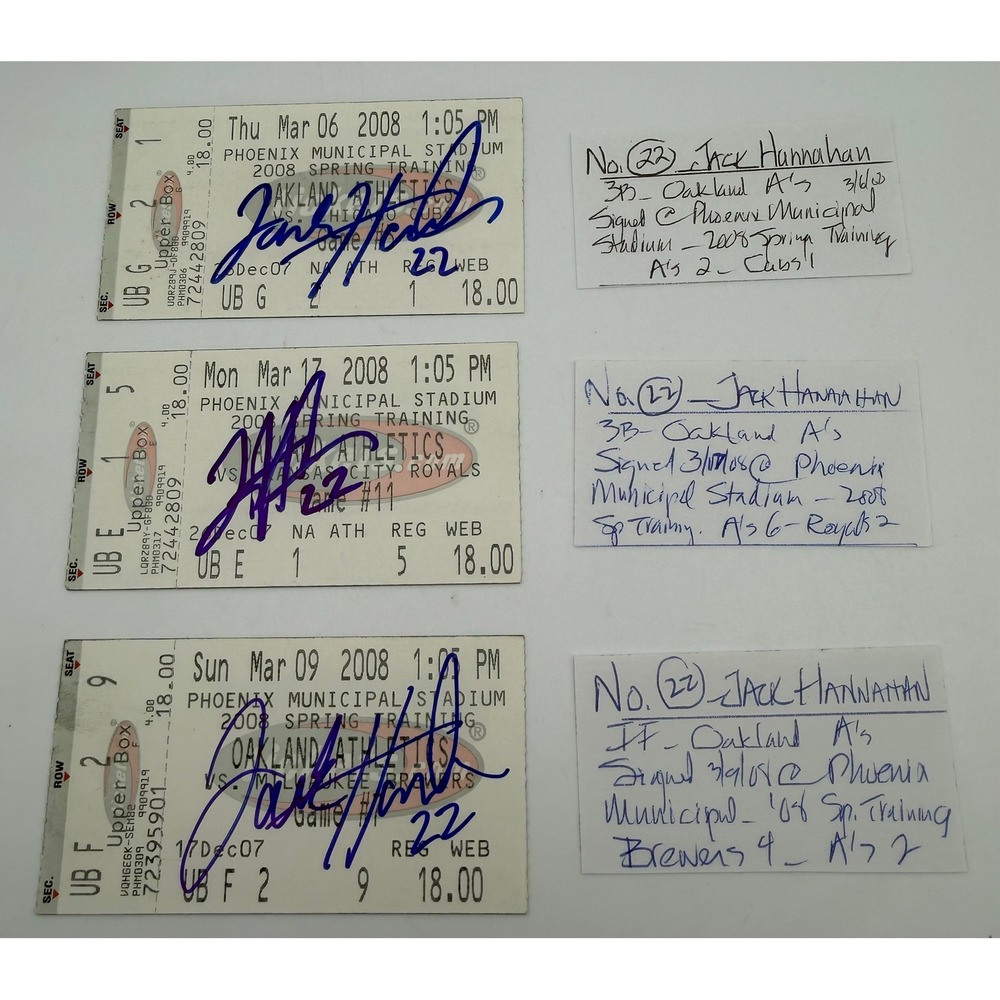 SEAT 1
ROW 2
SEC. UB G
Upper Box
4.00
18.00
UQRZ89J-DF80D
PHM0306 9909919
72442809
Thu Mar 06 2008 1:05 PM
PHOENIX MUNICIPAL STADIUM
2008 SPRING TRAINING
OAKLAND ATHLETICS
VS. CHICAGO CUBS
Game
Dec07 NA ATH REG WEB
UB G 2 1 18.00
Jack Hannahan
22
No. 22 Jack Hannahan
3B- Oakland A's 3/6/08
Signed @ Phoenix Municipal
Stadium - 2008 Spring Training
A's 2 - Cubs 1
SEAT 5
ROW 1
SEC. UB E
Upper Box
4.00
18.00
PHM0317 9909919
72442809
Mon Mar 17 2008 1:05 PM
PHOENIX MUNICIPAL STADIUM
2008 SPRING TRAINING
OAKLAND ATHLETICS
VS. KANSAS CITY ROYALS
Game #11
Dec07 NA ATH REG WEB
UB E 1 5 18.00
22
No. 22 - JACK HANNAHAN
3B- Oakland A's
Signed 3/17/08 @ Phoenix
Municipal Stadium - 2008
Sp Training. A's 6 - Royals 2
SEAT 9
ROW 2
SEC. UB F
Upper Box
4.00
18.00
VQHGEGK-SEM82
PHM0309 9909919
72395901
Sun Mar 09 2008 1:05 PM
PHOENIX MUNICIPAL STADIUM
2008 SPRING TRAINING
OAKLAND ATHLETICS
VS. MILWAUKEE BREWERS
Game
17Dec07 REG WEB
UB F 2 9 18.00
Jack Hannahan
22
No. 22 - JACK HANNAHAN
IF - Oakland A's
Signed 3/9/08 @ Phoenix
Municipal - '08 Sp. Training
Brewers 4 - A's 2